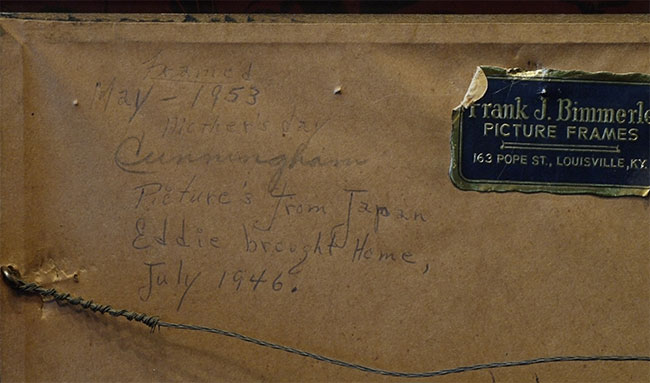 Framed
May - 1953
Mother's day
Cunningham
Picture's from Japan
Eddie brought Home,
July 1946.
Frank J. Bimmerle
PICTURE FRAMES
163 POPE ST., LOUISVILLE, KY.